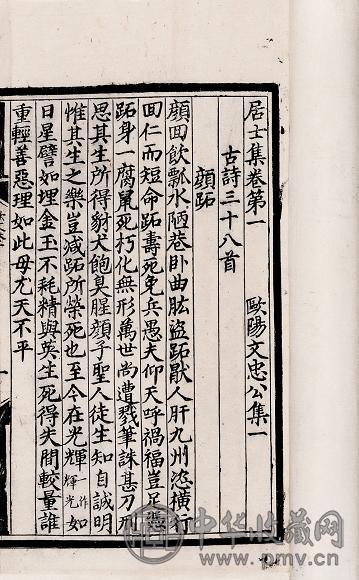 居士集卷第一　歐陽文忠公集一
古詩三十八首
顔跖
顔回飲瓢水陋巷卧曲肱盗跖猒人肝九州恣横行
回仁而短命跖壽死免兵愚夫仰天呼禍福豈足憑
跖身一腐鼠死朽化無形萬世尚遭戮筆誅甚刀刑
思其生所得豺犬飽臭腥顔子聖人徒生知自誠明
惟其生之樂豈减跖所榮死也至今在光輝一作輝光如
日星譬如埋金玉不耗精與英生死得失間較量誰
重輕善惡理如此毋尤天不平
中华收藏网
www.pmv.cn